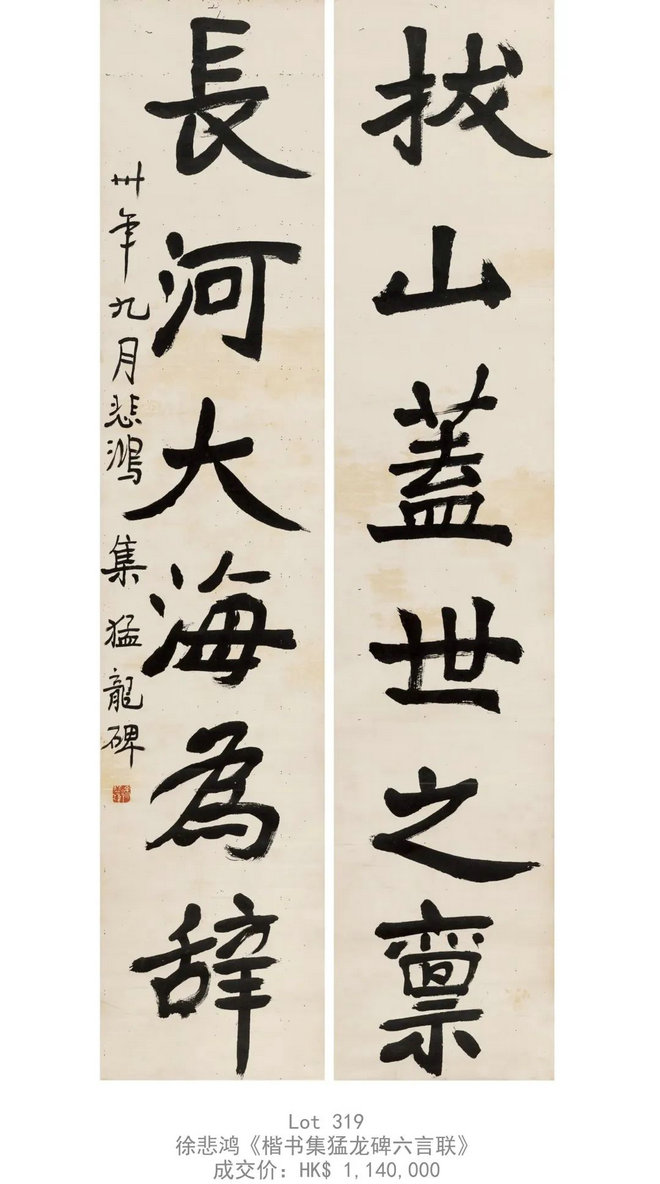 拔山蓋世之禀
長河大海為辞
卅年九月悲鴻 集猛龍碑
Lot 319
徐悲鸿《楷书集猛龙碑六言联》
成交价: HK$ 1,140,000